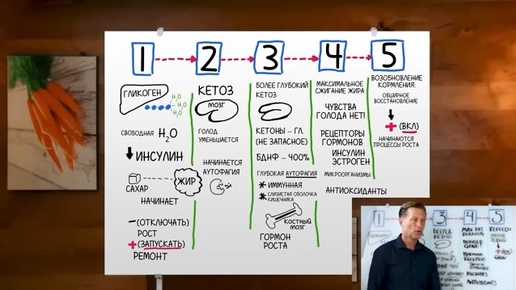 1
2
3
4
5
ГЛИКОГЕН
H₂O
H₂O
H₂O
СВОБОДНАЯ H₂O
ИНСУЛИН
САХАР
ЖИР
НАЧИНАЕТ
–(ОТКЛЮЧАТЬ)
РОСТ
+(ЗАПУСКАТЬ)
РЕМОНТ
КЕТОЗ
МОЗГ
ГОЛОД
УМЕНЬШАЕТСЯ
НАЧИНАЕТСЯ
АУТОФАГИЯ
БОЛЕЕ ГЛУБОКИЙ
КЕТОЗ
КЕТОНЫ – ГЛ.
(НЕ ЗАПАСНОЕ)
БДНФ – 400%
ГЛУБОКАЯ АУТОФАГИЯ
* ИММУННАЯ
* СЛИЗИСТАЯ ОБОЛОЧКА
КИШЕЧНИКА
КОСТНЫЙ
МОЗГ
ГОРМОН
РОСТА
МАКСИМАЛЬНОЕ
СЖИГАНИЕ ЖИРА
ЧУВСТВА
ГОЛОДА НЕТ!
РЕЦЕПТОРЫ
ГОРМОНОВ
ИНСУЛИН
ЭСТРОГЕН
МИКРООРГАНИЗМЫ
АНТИОКСИДАНТЫ
ВОЗОБНОВЛЕНИЕ
КОРМЛЕНИЯ:
ОБШИРНОЕ
ВОССТАНОВЛЕНИЕ
+(ВКЛ)
НАЧИНАЮТСЯ
ПРОЦЕССЫ РОСТА
1
2
3
4
5